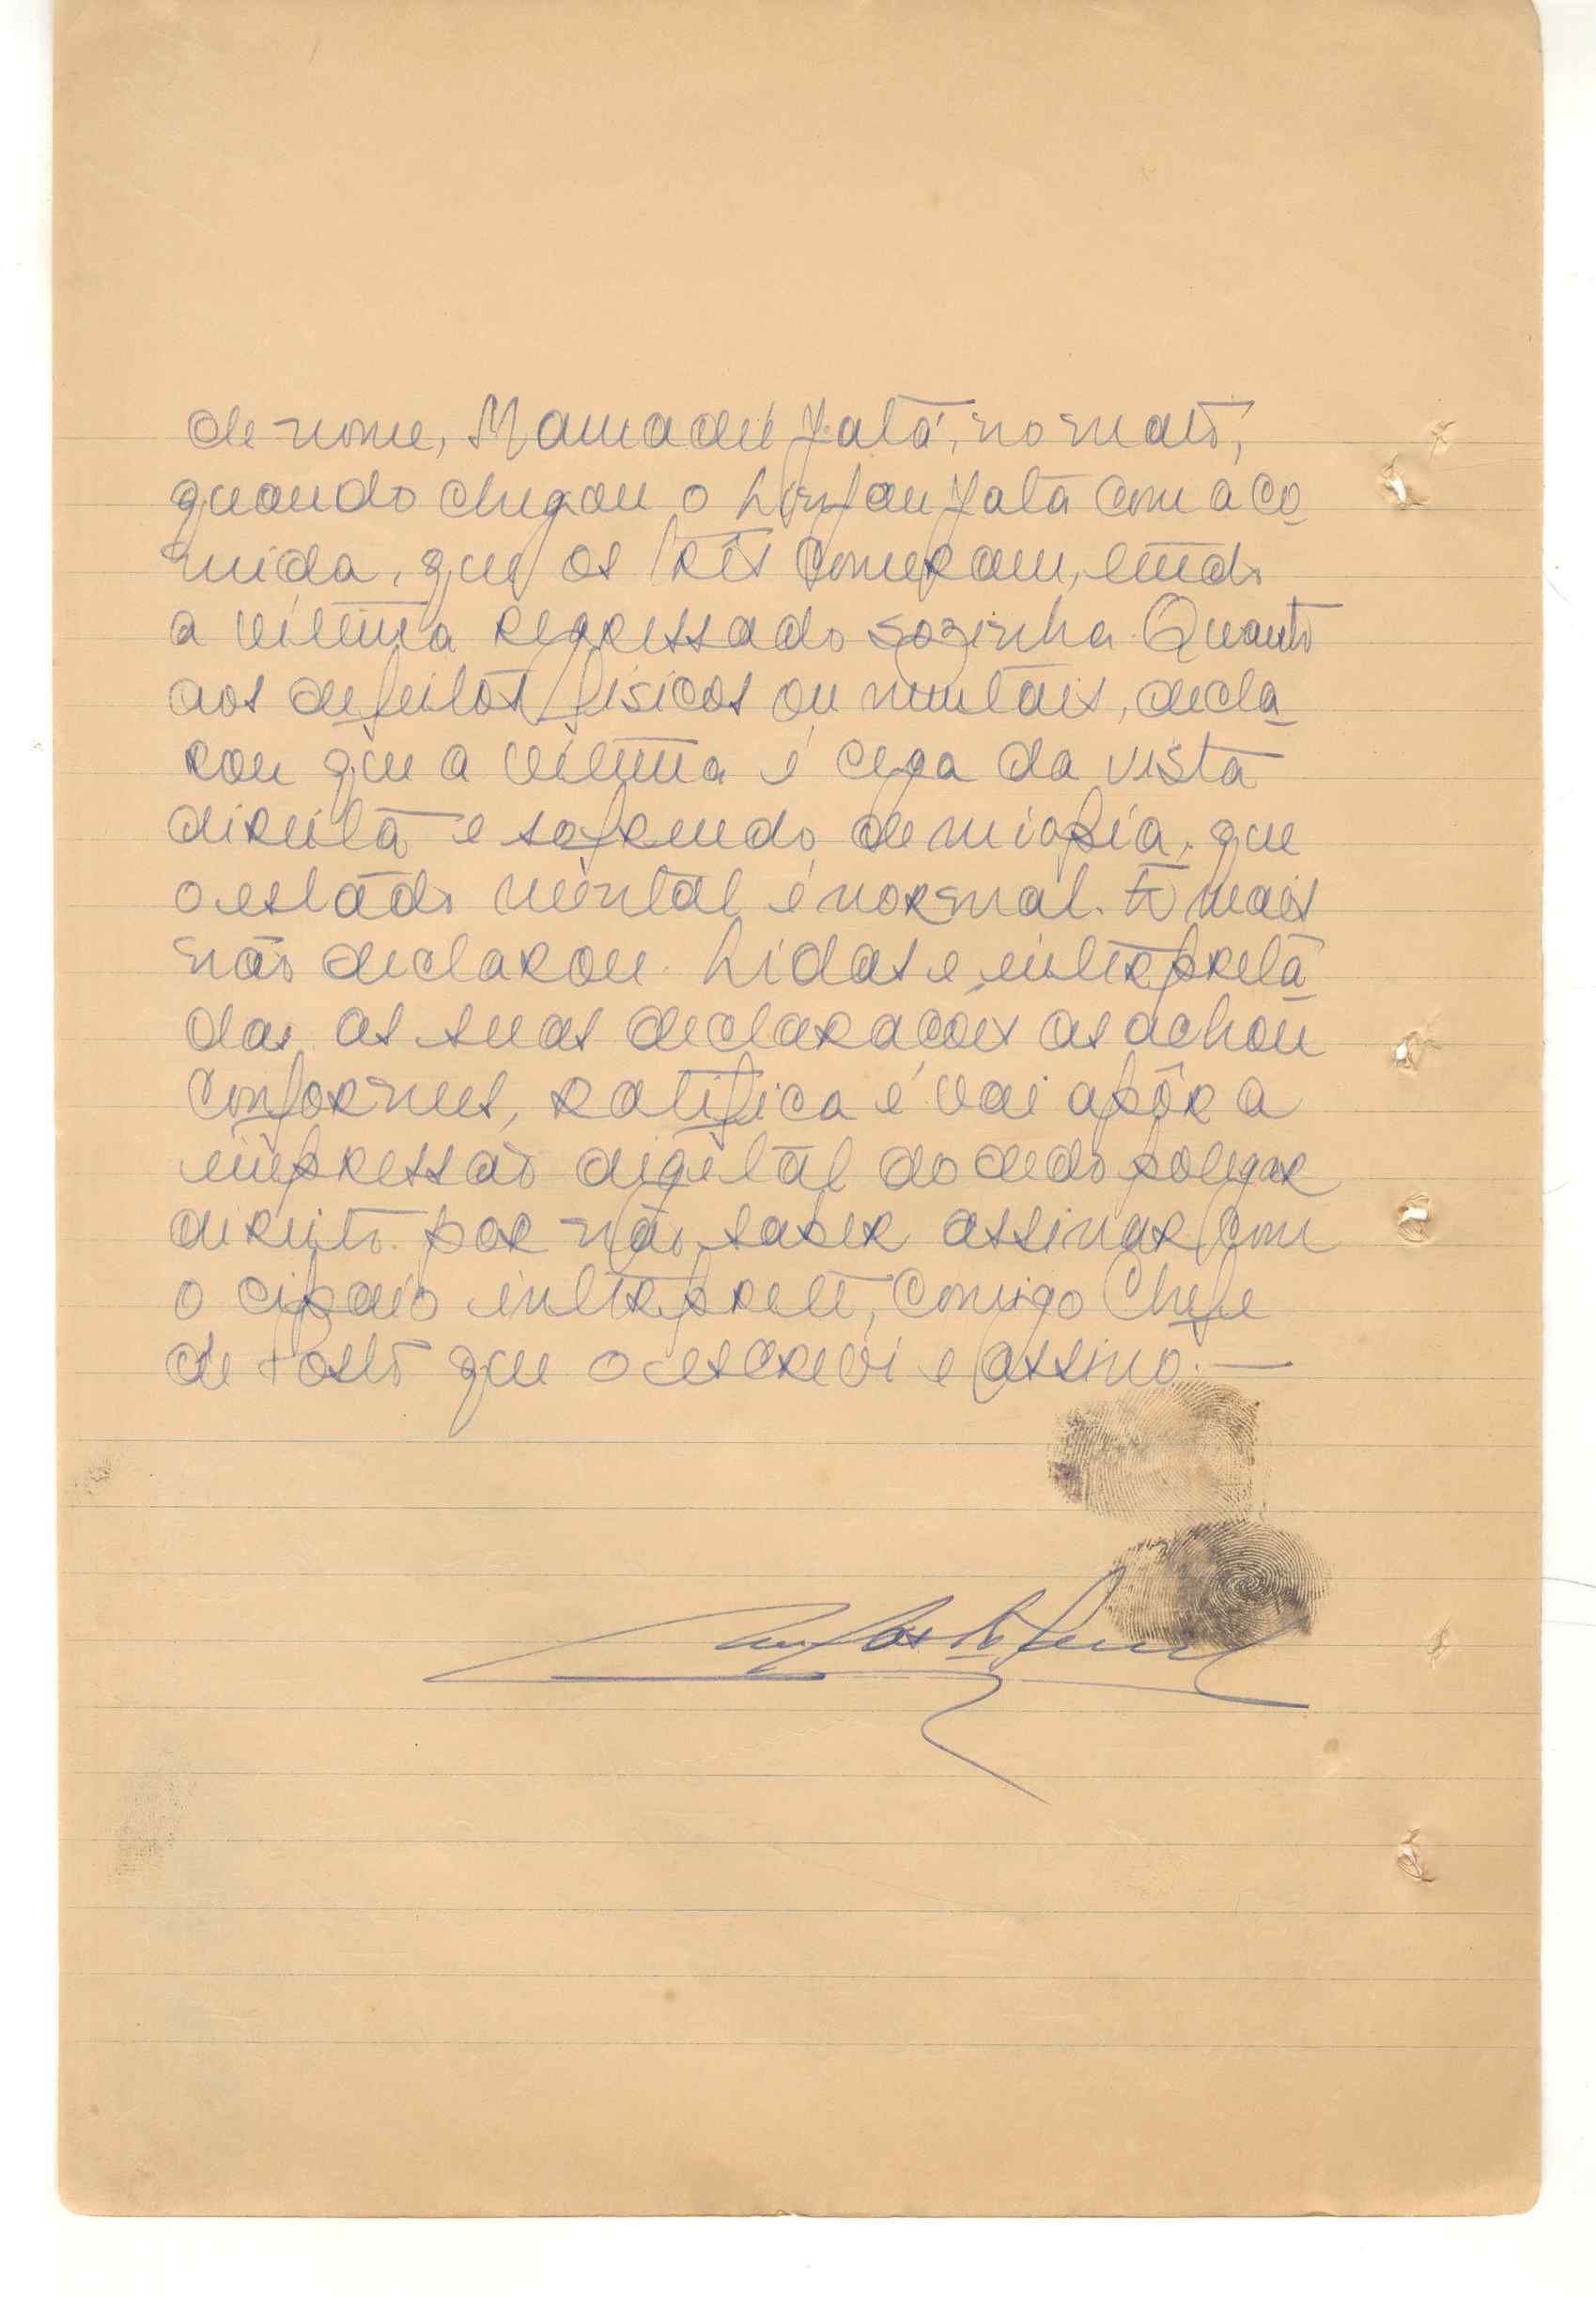 de nome, Mamadú Jatá, no mato,
quando chegou o Linfau Jatá com a co
mida, que os três comeram, tendo
a vítima regressado sozinha. Quanto
aos defeitos físicos ou mentais, decla
rou que a vítima é cega da vista
direita e sofrendo de miopia, que
o estado mental é normal. E mais
não declarou. Lidas e interpreta
das as suas declarações as achou
conformes, ratifica e vai apôr a
impressão digital do dedo polegar
direito por não saber assinar com
o cipaio intérprete, comigo Chefe
de Posto que o escrevi e assino.—